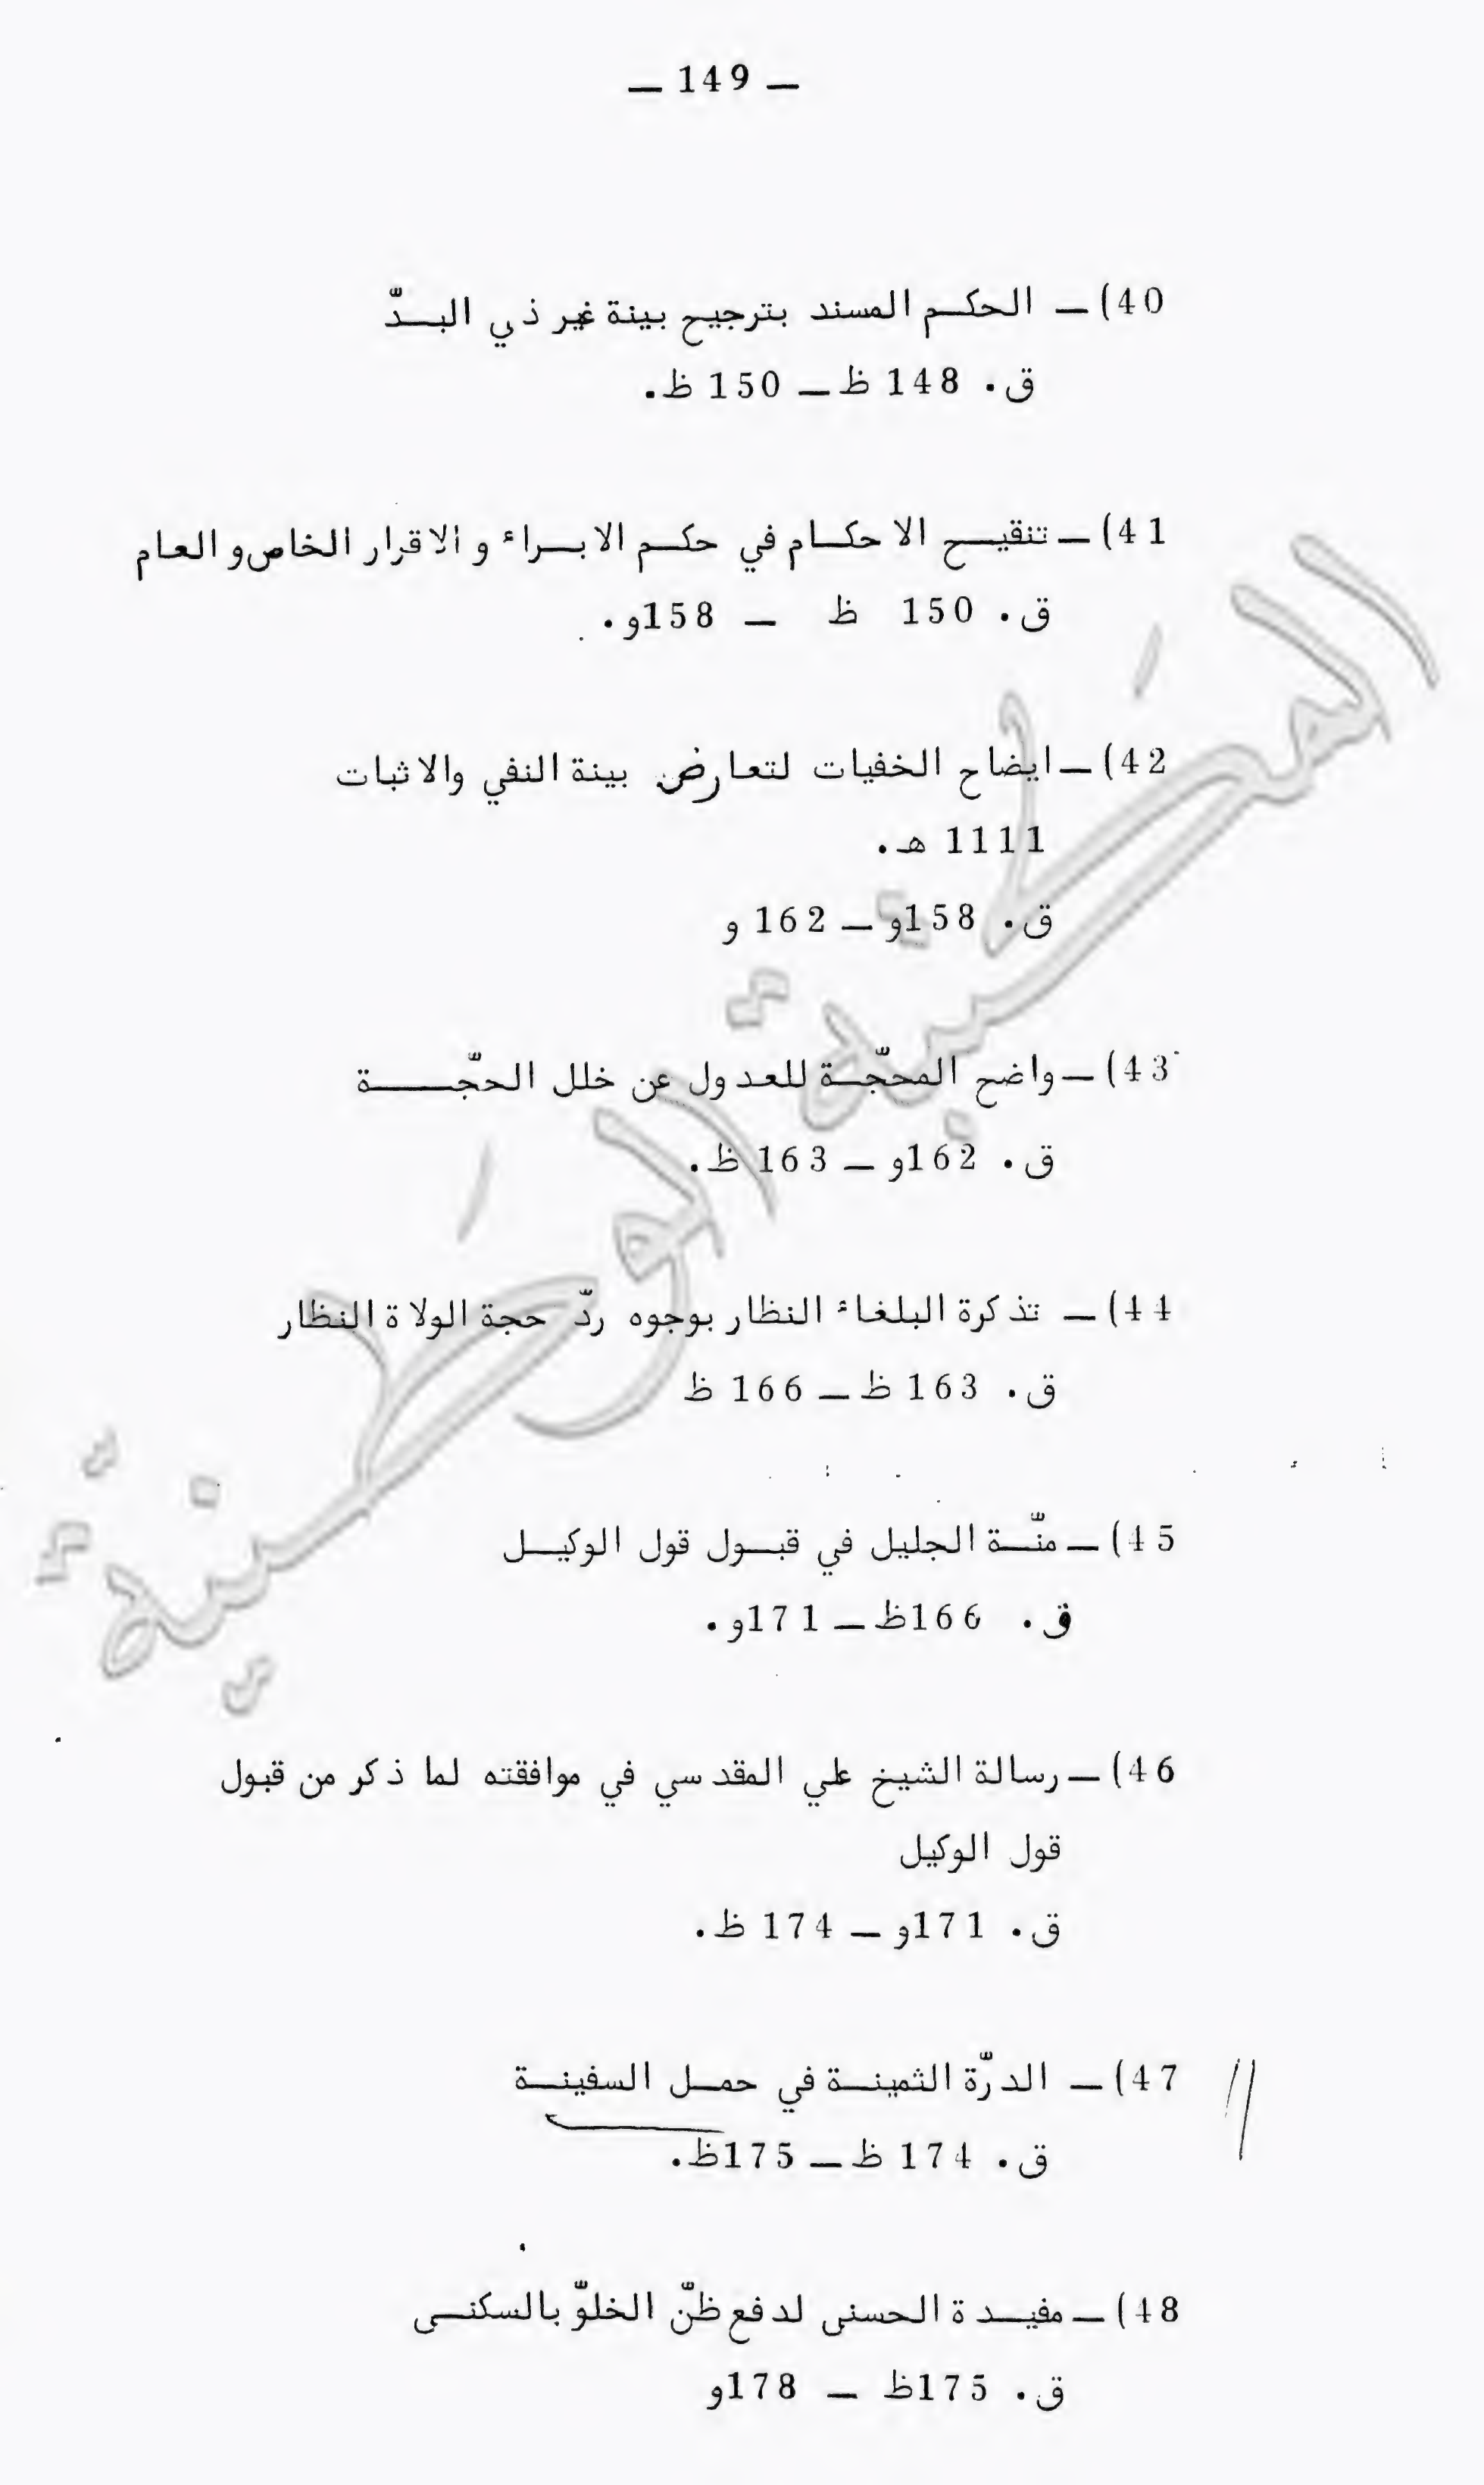 — 149 —
40) — الحكم المسند بترجيح بينة غير ذي البدّ
ق. 148 ظ — 150 ظ.
41) — تنقيح الاحكام في حكم الابراء والاقرار الخاص والعام
ق. 150 ظ — 158و.
42) — ايضاح الخفيات لتعارض بينة النفي والاثبات
1111 هـ.
ق. 158و — 162 و
43) — واضح المحجّة للعدول عن خلل الحجّة
ق. 162و — 163 ظ.
44) — تذكرة البلغاء النظار بوجوه ردّ حجة الولاة النظار
ق. 163 ظ — 166 ظ
45) — منّة الجليل في قبول قول الوكيل
ق. 166ظ — 171و.
46) — رسالة الشيخ علي المقدسي في موافقته لما ذكر من قبول
قول الوكيل
ق. 171و — 174 ظ.
47) — الدرّة الثمينة في حمل السفينة
ق. 174 ظ — 175ظ.
48) — مفيدة الحسنى لدفع ظنّ الخلوّ بالسكنى
ق. 175ظ — 178و
المكتبة الوطنية